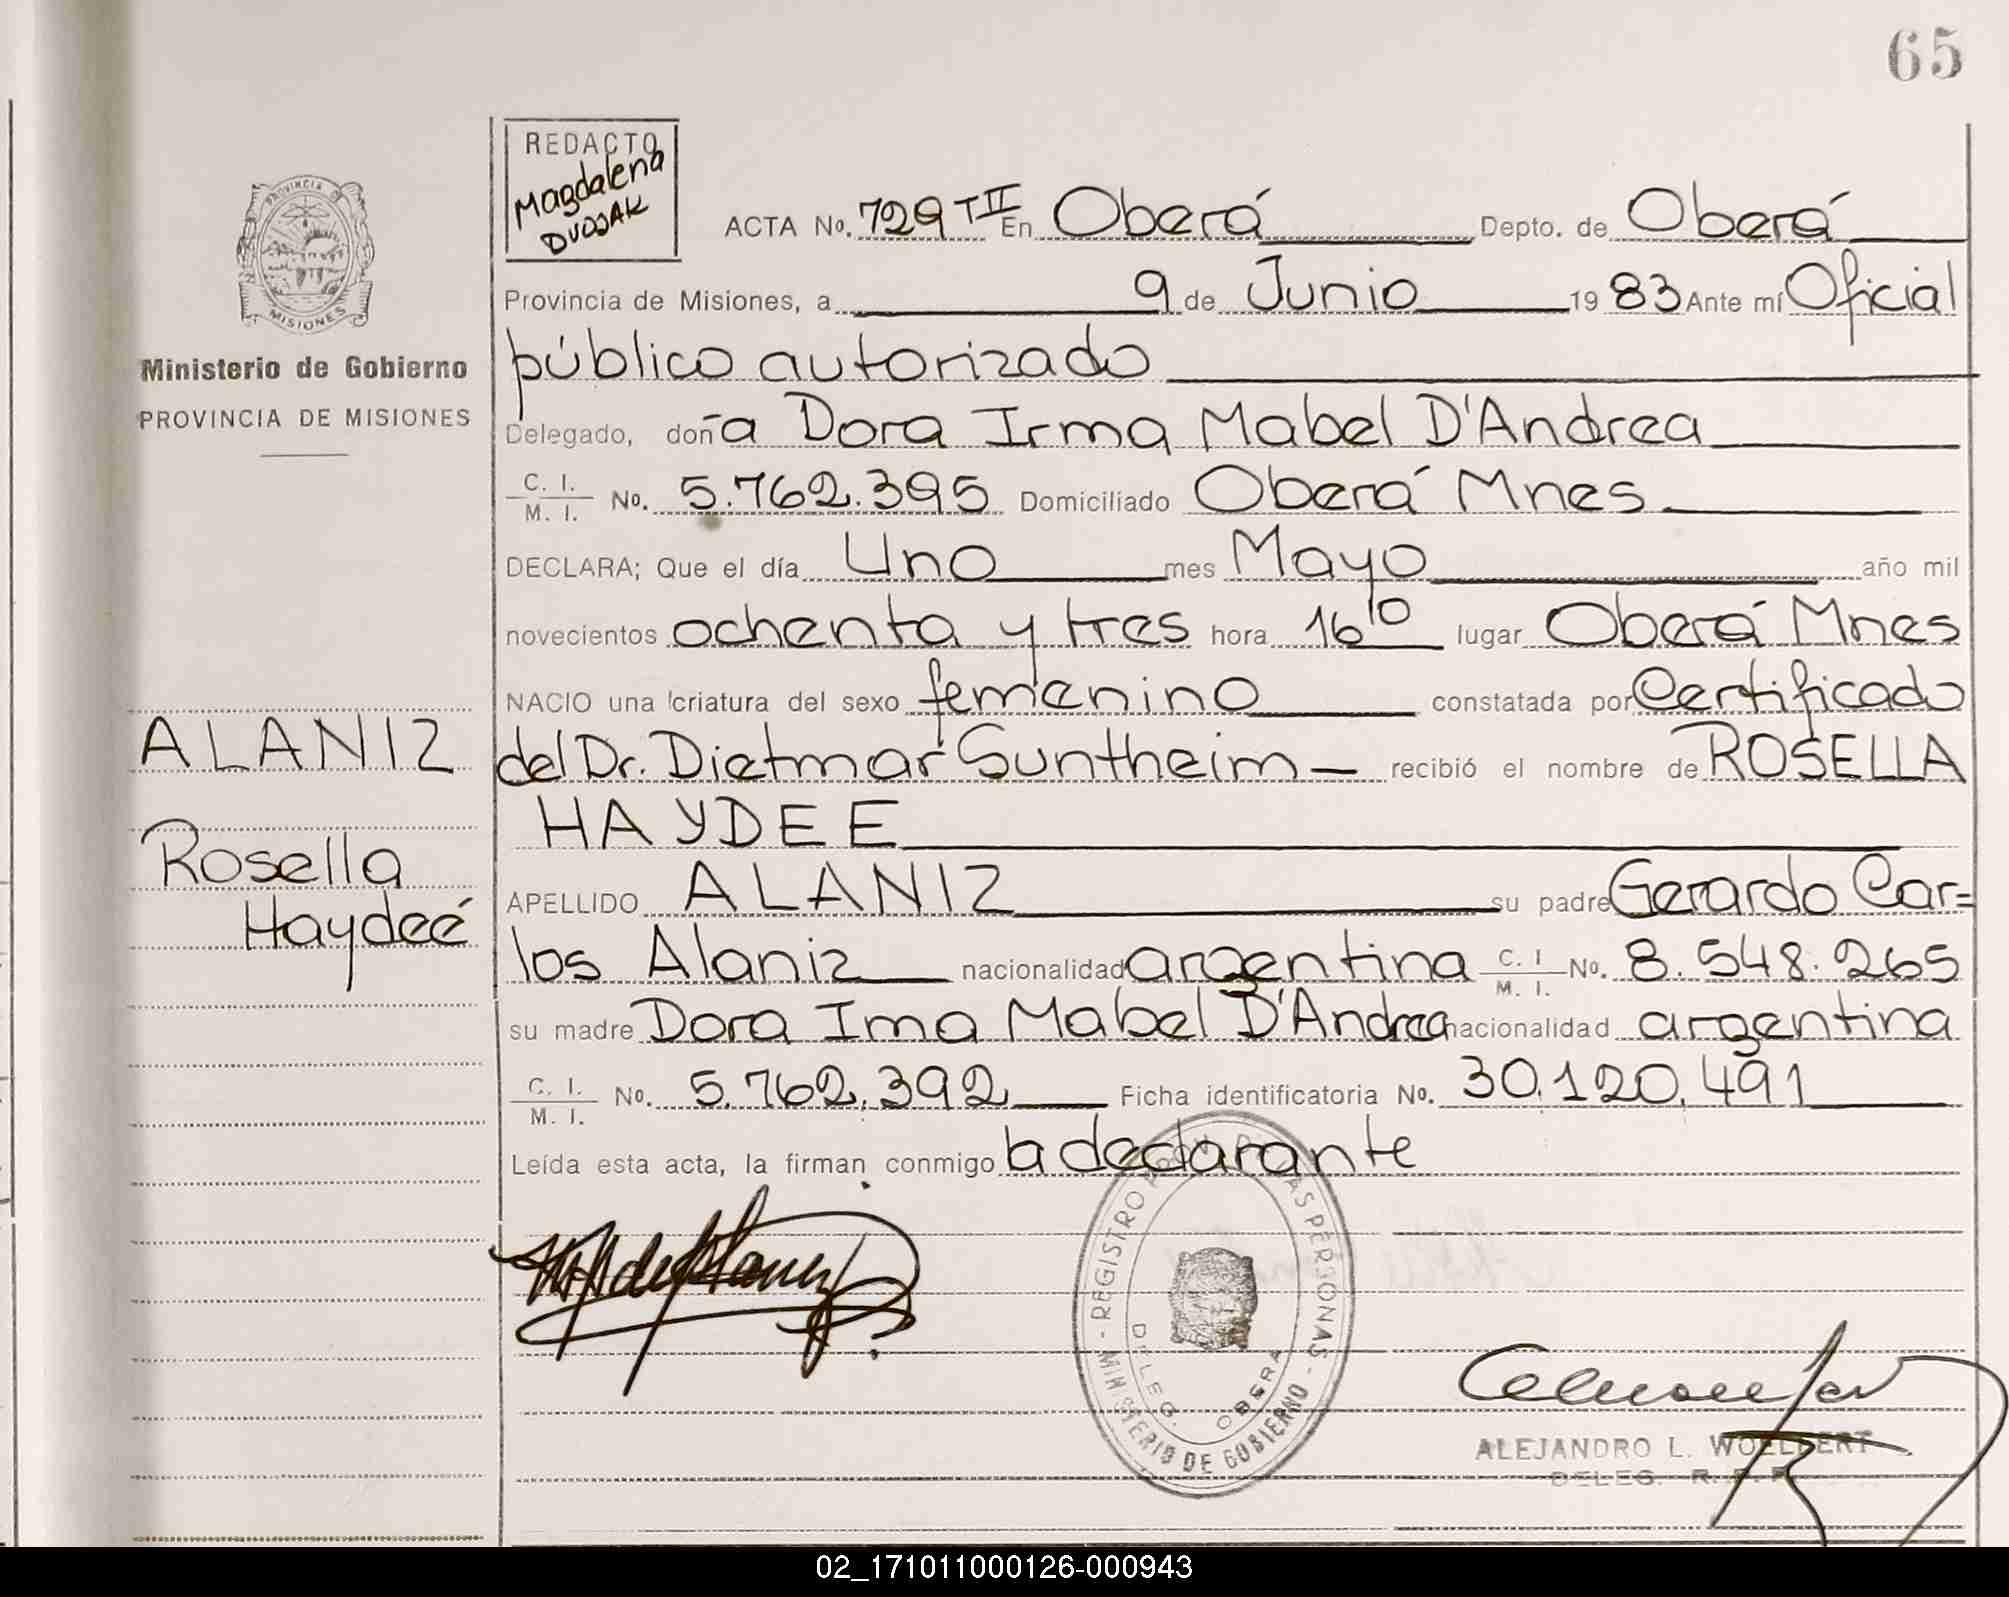 65
REDACTO
Magdalena
DVOJAK
PROVINCIA DE
MISIONES
Ministerio de Gobierno
PROVINCIA DE MISIONES
ALANIZ
Rosella
Haydeé
ACTA No. 729 TII En Oberá Depto. de Oberá
Provincia de Misiones, a 9 de Junio 1983 Ante mí Oficial
público autorizado
Delegado, doña Dora Irma Mabel D'Andrea
C. I. / M. I. No. 5.762.395 Domiciliado Oberá Mnes
DECLARA; Que el día Uno mes Mayo año mil
novecientos ochenta y tres hora 16 10 lugar Oberá Mnes
NACIO una criatura del sexo femenino constatada por Certificado
del Dr. Dietmar Suntheim — recibió el nombre de ROSELLA
HAYDEE
APELLIDO ALANIZ su padre Gerardo Car=
los Alaniz nacionalidad argentina C. I / M. I. No. 8.548.265
su madre Dora Ima Mabel D'Andrea nacionalidad argentina
C. I. / M. I. No. 5.762.392 Ficha identificatoria No. 30.120.491
Leída esta acta, la firman conmigo la declarante
REGISTRO PERSONAS
MINISTERIO DE GOBIERNO
DELEG. OBERA
ALEJANDRO L. WOELFERT
DELEG. R. P. P.
02_171011000126-000943